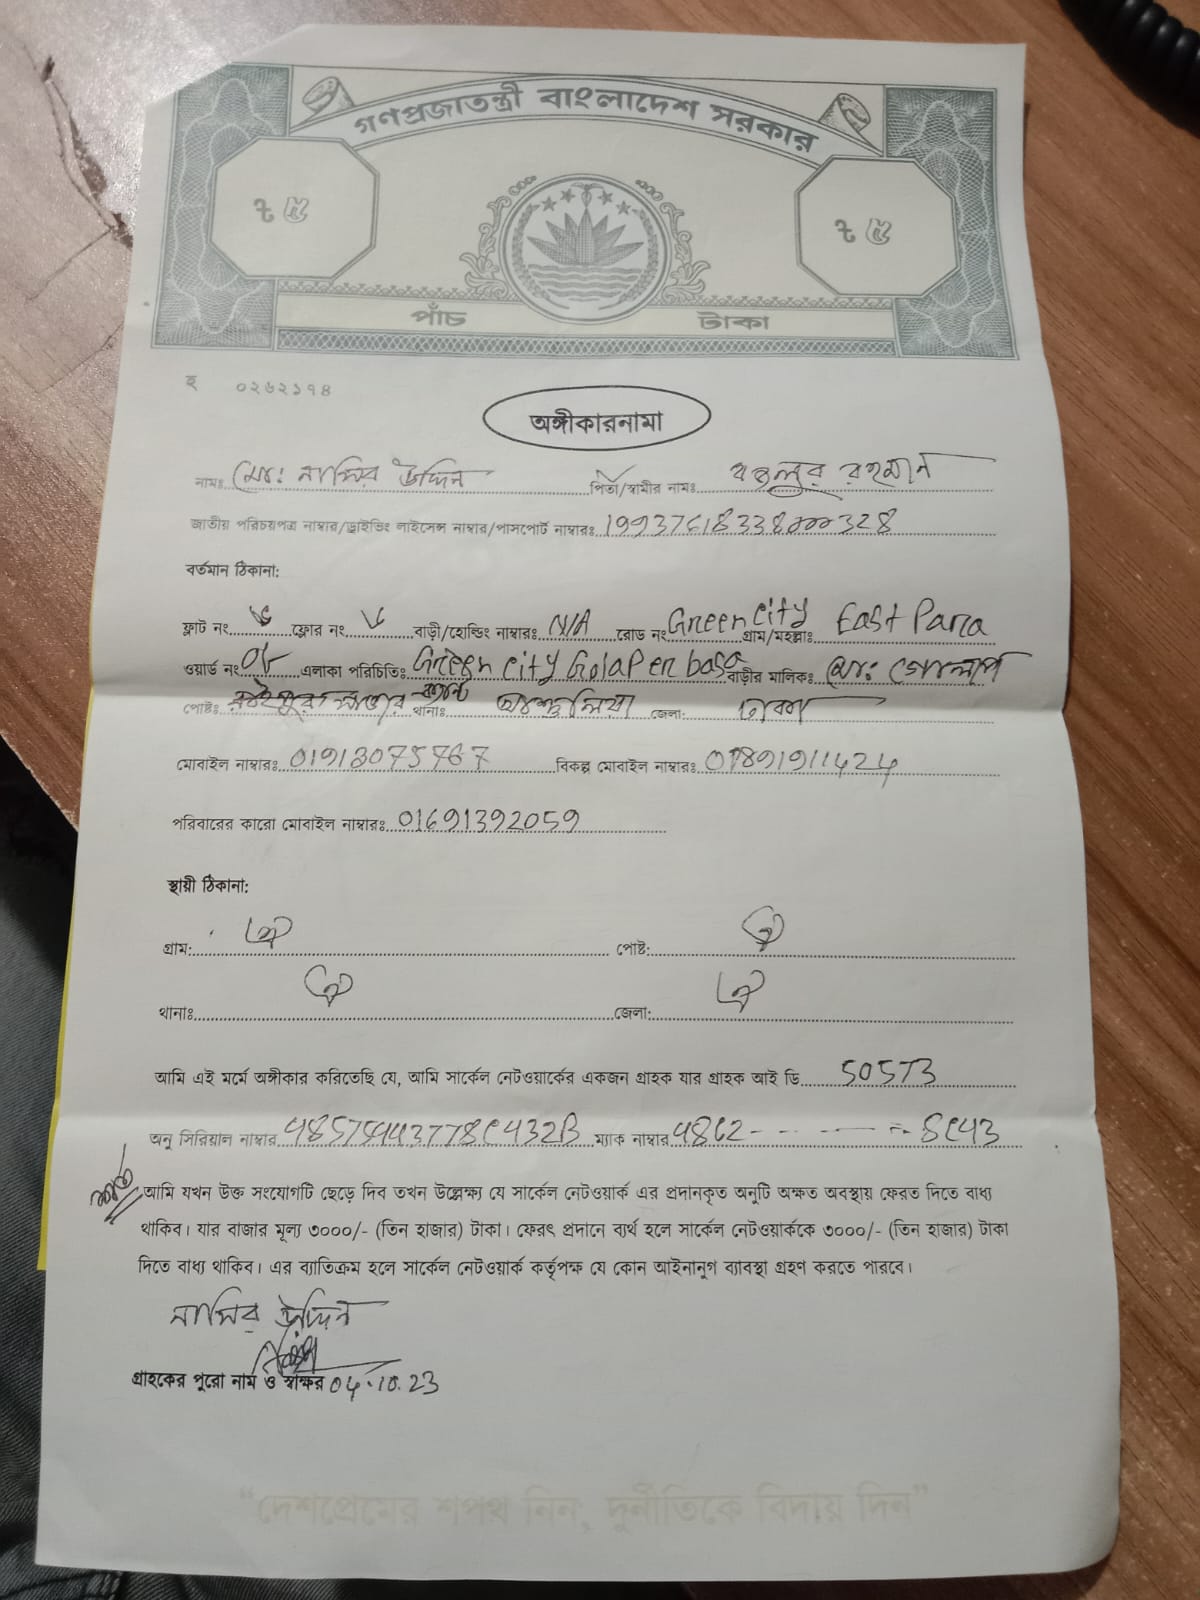 গণপ্রজাতন্ত্রী বাংলাদেশ সরকার
৳ ৫ ৳ ৫
পাঁচ টাকা
হ ০২৬২১৭৪
অঙ্গীকারনামা
নামঃ মোঃ নাসির উদ্দিন পিতা/স্বামীর নামঃ রহমান
জাতীয় পরিচয়পত্র নাম্বার/ড্রাইভিং লাইসেন্স নাম্বার/পাসপোর্ট নাম্বারঃ 19937618338000328
বর্তমান ঠিকানা:
ফ্লাট নং ফ্লোর নং বাড়ী/হোল্ডিং নাম্বারঃ N/A রোড নং Green City গ্রাম/মহল্লাঃ East Para
ওয়ার্ড নং এলাকা পরিচিতিঃ Green City Golap er basa বাড়ীর মালিকঃ মোঃ গোলাপ
পোষ্টঃ থানাঃ আশুলিয়া জেলা: ঢাকা
মোবাইল নাম্বারঃ 01913075767 বিকল্প মোবাইল নাম্বারঃ
পরিবারের কারো মোবাইল নাম্বারঃ 01691392059
স্থায়ী ঠিকানা:
গ্রাম: ঐ পোষ্ট: ঐ
থানাঃ ঐ জেলা: ঐ
আমি এই মর্মে অঙ্গীকার করিতেছি যে, আমি সার্কেল নেটওয়ার্কের একজন গ্রাহক যার গ্রাহক আই ডি 50573
অনু সিরিয়াল নাম্বার 48575443778C432B ম্যাক নাম্বার 48C2 8C43
আমি যখন উক্ত সংযোগটি ছেড়ে দিব তখন উল্লেক্ষ্য যে সার্কেল নেটওয়ার্ক এর প্রদানকৃত অনুটি অক্ষত অবস্থায় ফেরত দিতে বাধ্য
থাকিব। যার বাজার মূল্য ৩০০০/- (তিন হাজার) টাকা। ফেরৎ প্রদানে ব্যর্থ হলে সার্কেল নেটওয়ার্ককে ৩০০০/- (তিন হাজার) টাকা
দিতে বাধ্য থাকিব। এর ব্যাতিক্রম হলে সার্কেল নেটওয়ার্ক কর্তৃপক্ষ যে কোন আইনানুগ ব্যাবস্থা গ্রহণ করতে পারবে।
নাসির উদ্দিন
গ্রাহকের পুরো নাম ও স্বাক্ষর 04.10.23
“দেশপ্রেমের শপথ নিন, দুর্নীতিকে বিদায় দিন”